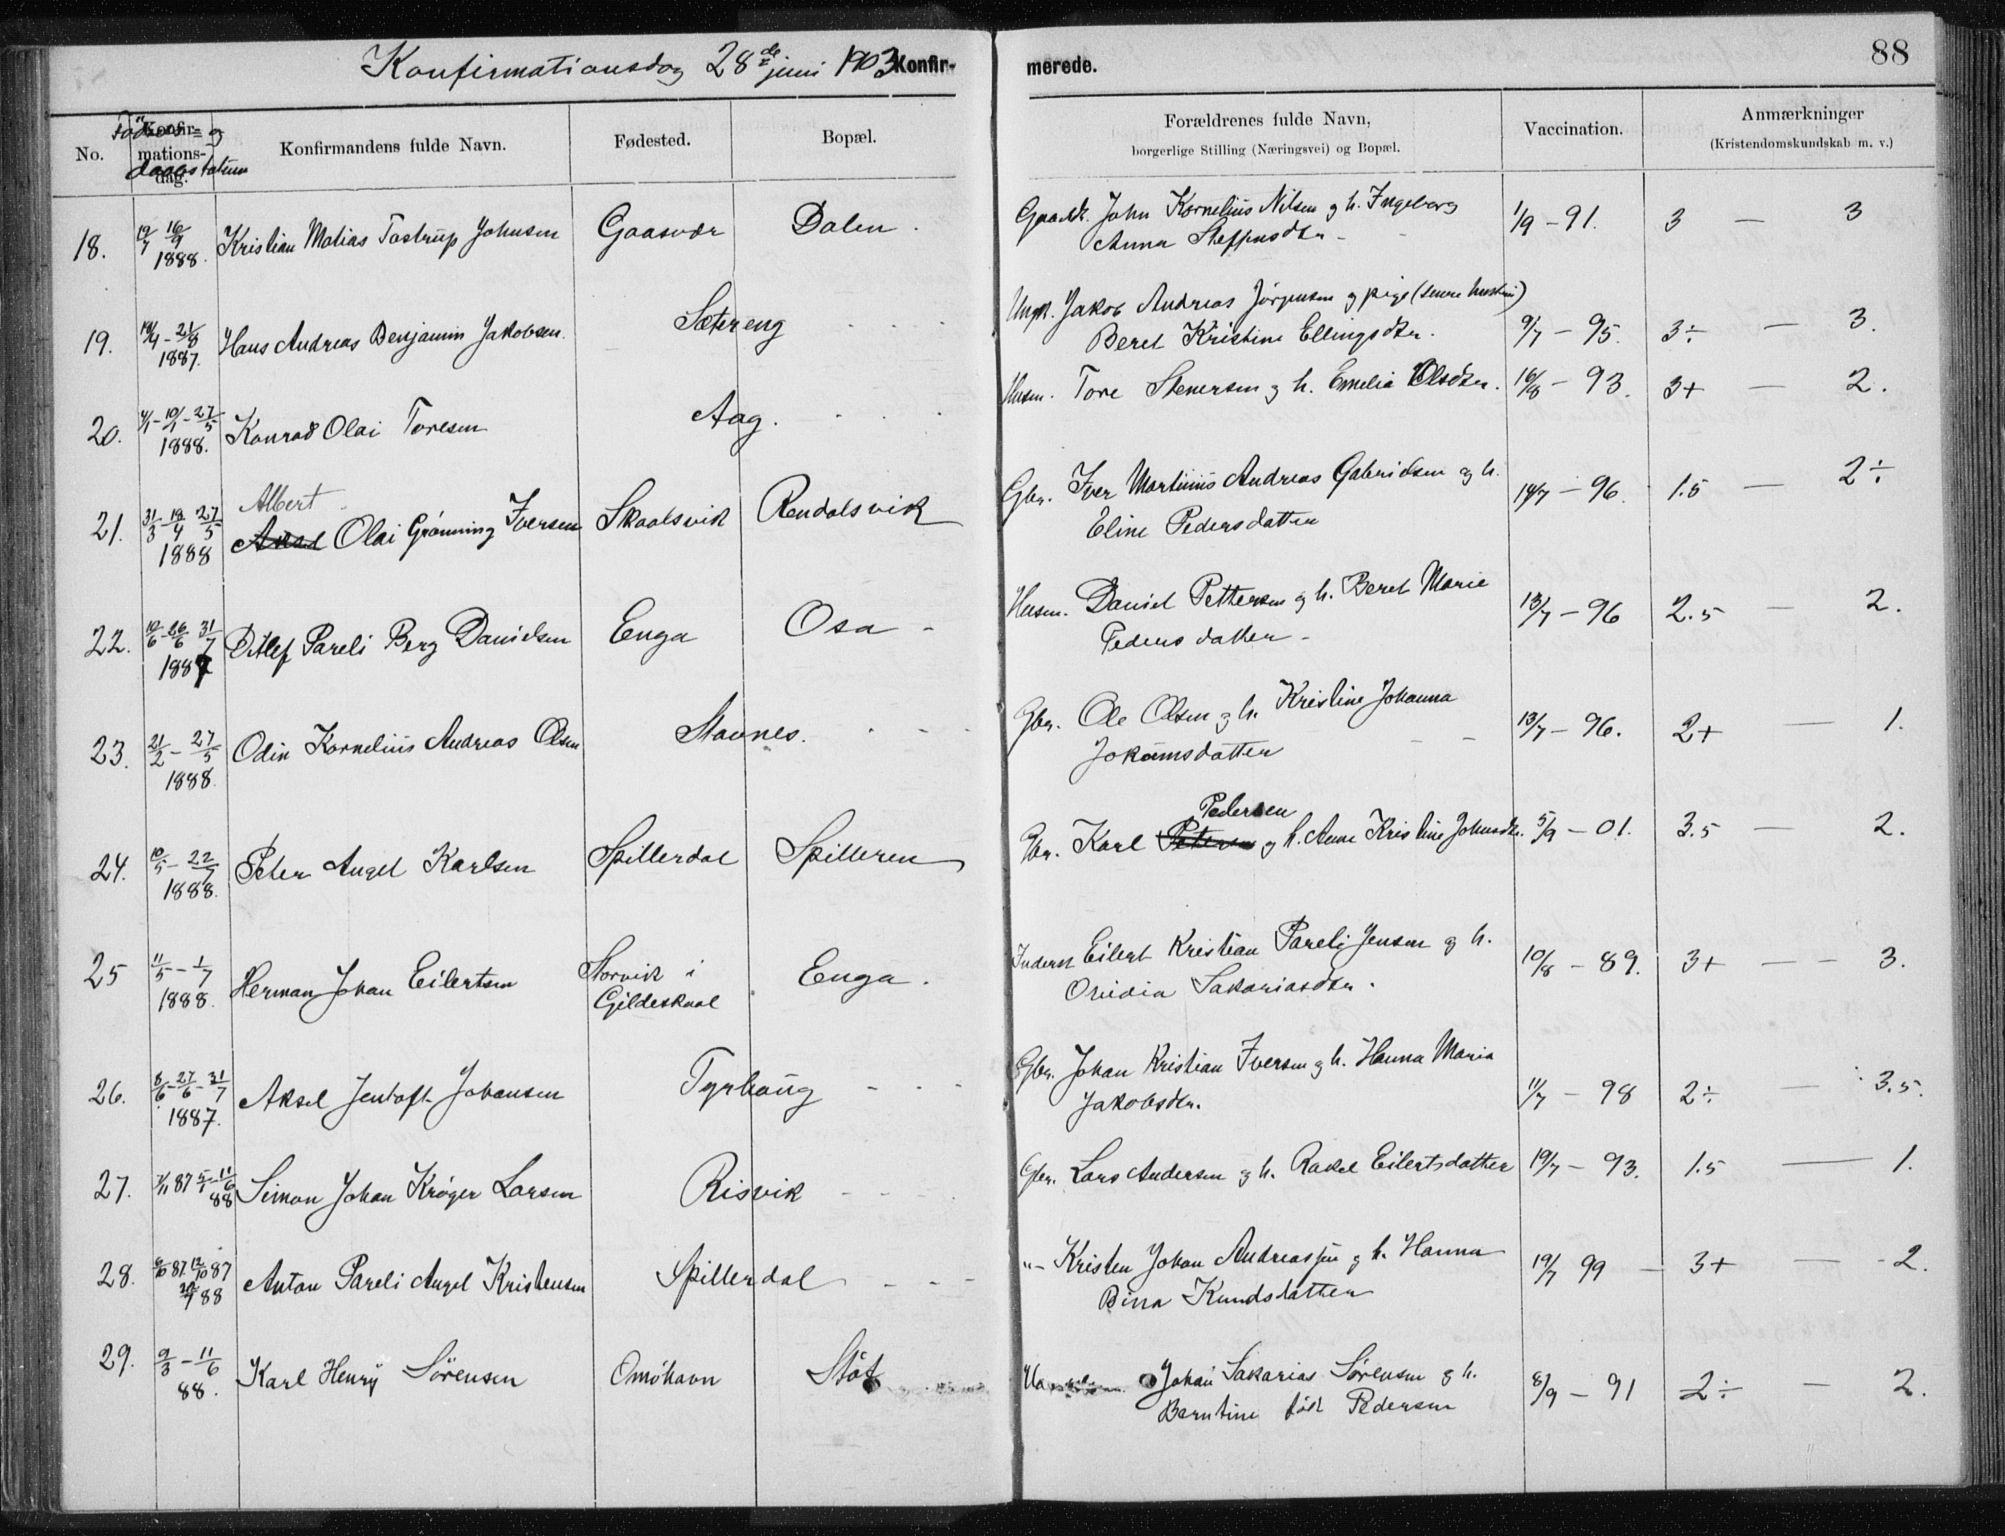 Konfirmationsdag 28de juni 1903 Konfir-
merede.
88
No.
Fødsels- og
Konfir-
mations-
dag.
daabsdatum
Konfirmandens fulde Navn.
Fødested.
Bopæl.
Forældrenes fulde Navn,
borgerlige Stilling (Næringsvei) og Bopæl.
Vaccination.
Anmærkninger
(Kristendomskundskab m. v.)
18. 16/9 1888. Kristian Matias Tostrup Johnsen Gaasvær Dalen.
John Kornelius Nilsen og h. Ingeborg
Anna Steffensdtr -
1/9 - 91. 3 — 3
19. 21/8 1887. Hans Andreas Benjamin Jakobsen. Sætereng
Ungk. Jakob Andreas Jørgensen og pige (senere hustru)
Beret Kristine Ellingsdtr.
9/7 - 95. 3÷ — 3.
20. 4/1 - 10/1 - 27/5 1888. Konrad Olai Toresen Aag.
Husm. Tore Stenersen og h. Emelia Olsdtr. 16/8 - 93. 3+ — 2.
21. 31/3 - 19/4 27/5 1888 Albert
Olai Grønning Iversen Skaalsvik Rendalsvik
Gbr. Iver Martinus Andreas Gabrielsen og h.
Eline Pedersdatter
14/7 - 96. 1.5 — 2÷
22. 12/6 - 26/6 31/7 1887 Ditlef Pareli Berg Danielsen Enga Osa -
Husm. Daniel Pettersen og h. Beret Marie
Pedersdatter -
13/7 - 96 2.5 — 2.
23. 21/2 - 27/5 1888. Odin Kornelius Andreas Olsen Stavnes.
Gbr. Ole Olsen og h. Kristine Johanna
Jokumsdatter
13/7 - 96. 2+ — 1.
24. 10/5 - 22/7 1888. Peter Angel Karlsen Spillerdal Spilleren
Pedersen
Gbr. Karl Petersen og h. Anne Kristine Johnsdtr. 5/9 - 01. 3.5 — 2.
25 11/5 - 1/7 1888. Herman Johan Eilertsen Storvik i
Gildeskaal Enga.
Inderst Eilert Kristian Pareli Jensen og h.
Ovidia Sakariasdtr.
10/8 - 89. 3+ — - 3.
26. 8/6 - 27/6 - 31/7 1887. Aksel Jentoft Johansen Tyrhaug
Gbr. Johan Kristian Iversen og h. Hanna Maria
Jakobsdtr.
11/7 - 98 2÷ — 3.5.
27. 87 5/1 - 11/6 88 Simon Johan Krøger Larsen Risvik
Gbr. Lars Andersen og h. Rakel Eilertsdatter 19/7 - 93. 1.5 — 1.
28. 87 12/10 87 88 Anton Pareli Angel Kristensen Spillerdal
"- Kristen Johan Andreassen og h. Hanna
Bina Knudsdatter
19/7 99 - 3+ — 2.
29. 9/3 - 11/6 88. Karl Henry Sørensen Omøhavn Støt
Johan Sakarias Sørensen og h.
Berntine født Pedersen
8/9 - 91 2÷ — 2.